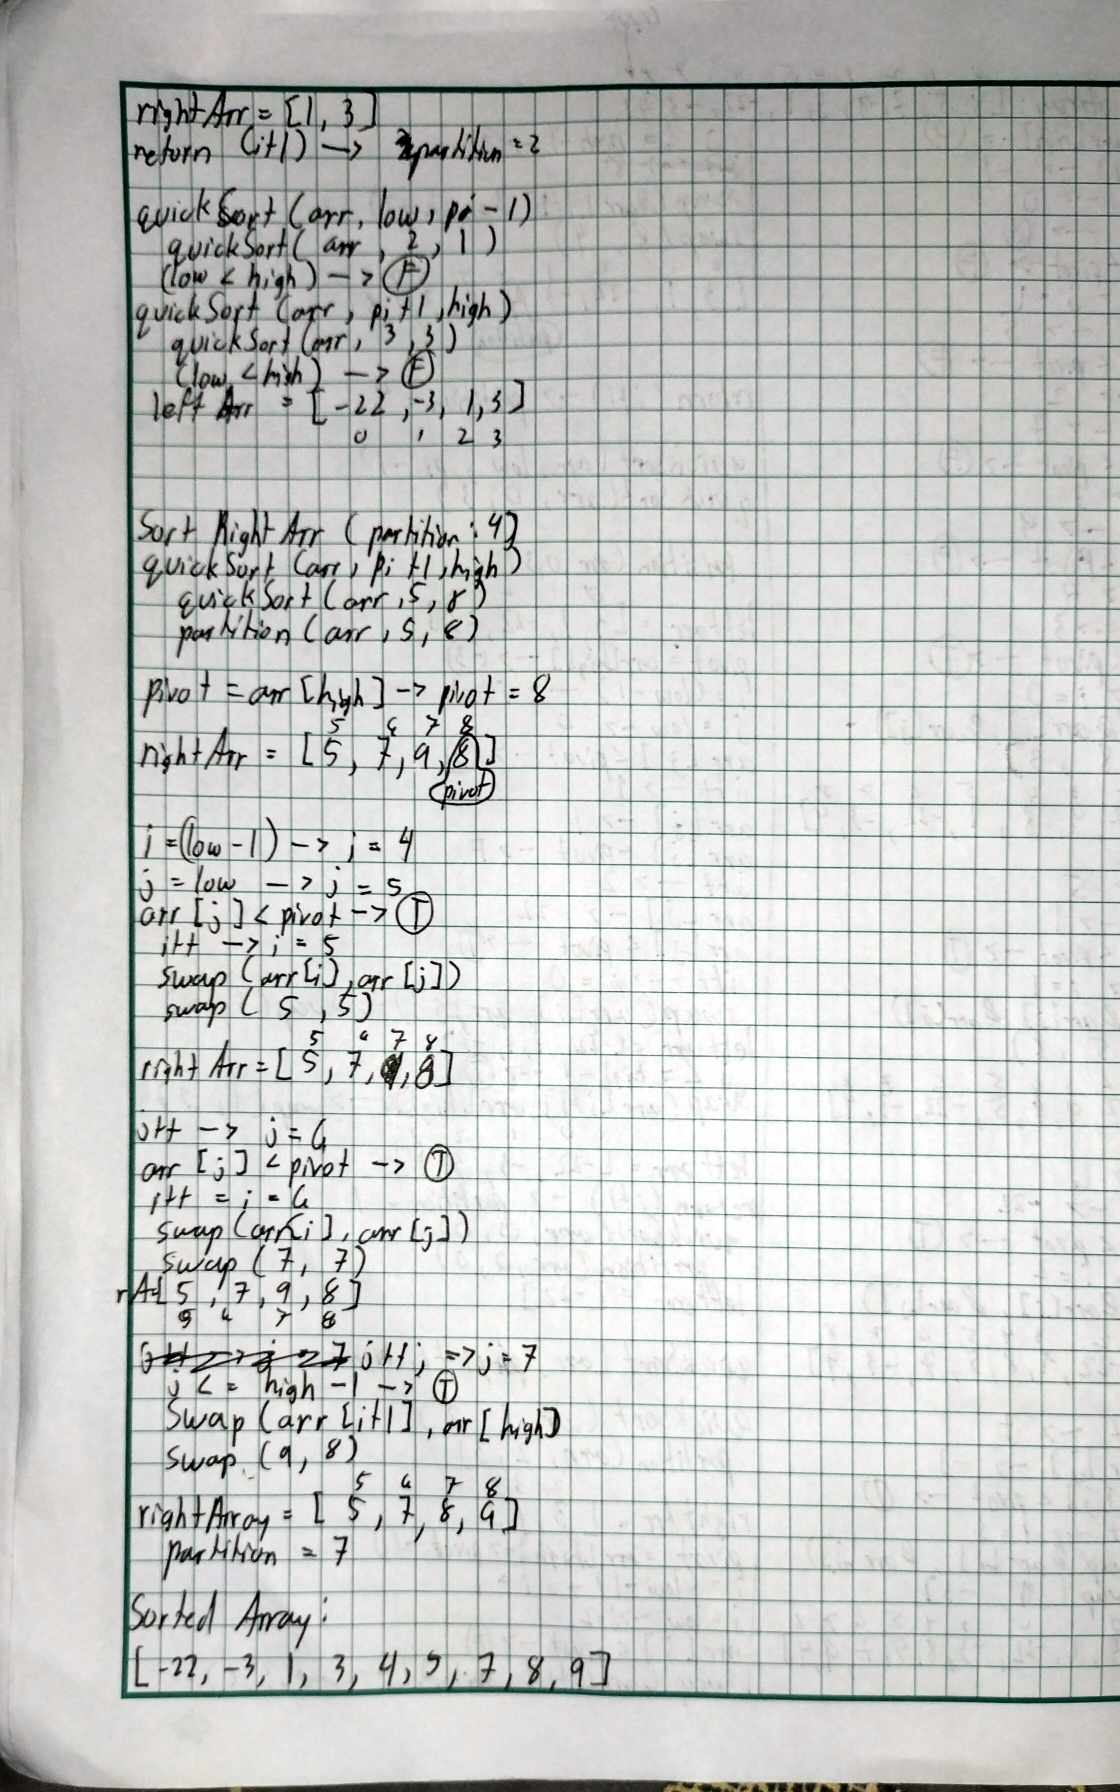 rightArr = [1, 3]
return (i+1) -> partition = 2
quickSort (arr, low, pi - 1)
quickSort( arr, 2, 1 )
(low < high) -> F
quickSort (arr, pi+1, high)
quickSort (arr, 3, 3)
(low < high) -> F
left Arr = [-22, -3, 1, 3]
0 1 2 3
Sort Right Arr (partition: 4)
quickSort (arr, pi+1, high)
quickSort (arr, 5, 8)
partition (arr, 5, 8)
pivot = arr [high] -> pivot = 8
5 6 7 8
rightArr = [5, 7, 9, 8]
pivot
i = (low - 1) -> i = 4
j = low -> j = 5
arr [j] < pivot -> T
i++ -> i = 5
swap (arr[i], arr [j])
swap ( 5, 5)
5 6 7 8
right Arr = [5, 7, 9, 8]
j++ -> j = 6
arr [j] < pivot -> T
i++ = i = 6
swap (arr[i], arr [j])
swap (7, 7)
rA=[5, 7, 9, 8]
5 6 7 8
j++; => j = 7
j <= high - 1 -> T
Swap (arr [i+1], arr [high])
swap (9, 8)
5 6 7 8
rightArray = [5, 7, 8, 9]
partition = 7
Sorted Array:
[-22, -3, 1, 3, 4, 5, 7, 8, 9]